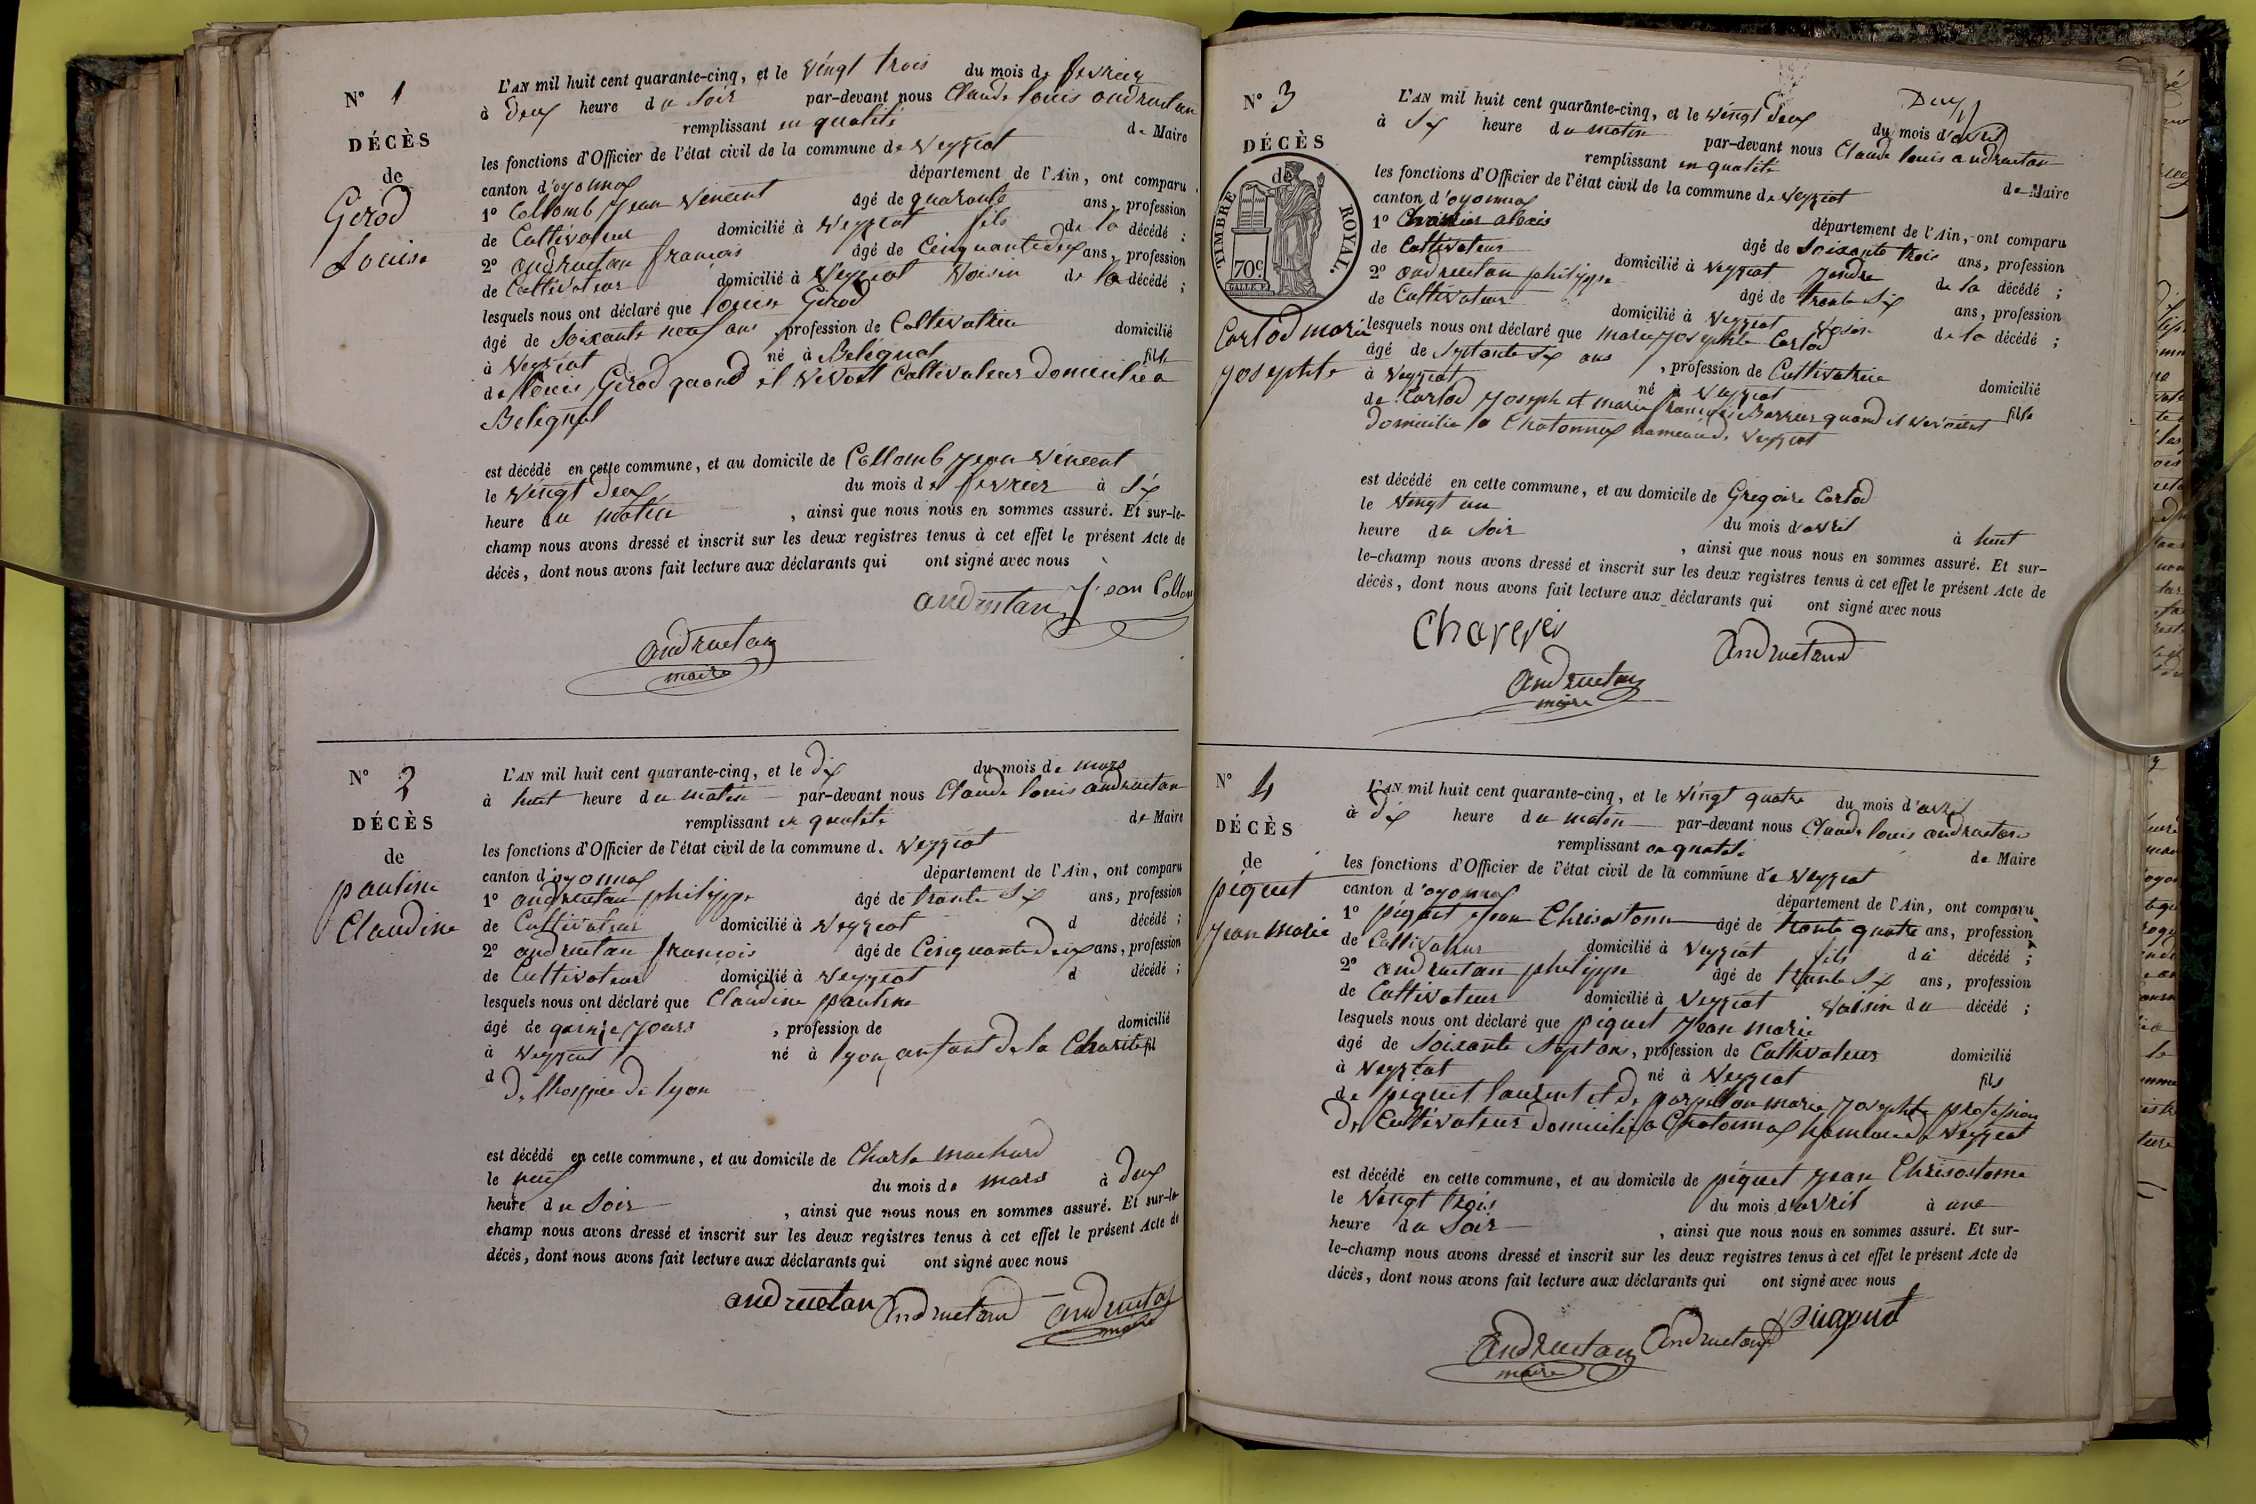 N° 1
DÉCÈS
de
Gerod
Louise
L'AN mil huit cent quarante-cinq, et le vingt trois du mois de fevrier
à deux heure du soir par-devant nous Claude louis andruetan
remplissant en qualité de Maire
les fonctions d'Officier de l'état civil de la commune de Veyziat
canton d'oyonnax département de l'Ain, ont comparu
1° Collomb jean vincent âgé de quarante ans, profession
de Cultivateur domicilié à Veyziat fils de la décédé ;
2° andruetan francois âgé de Cinquante deux ans, profession
de Cultivateur domicilié à Veyziat Voisin de la décédé ;
lesquels nous ont déclaré que louise Gerod
âgé de soixante neuf ans, profession de Cultivatrice domicilié
à Veyziat né à Belignat fille
de louis Gerod quand il vivoit Cultivateur domicilié a
Belignat
est décédé en cette commune, et au domicile de Collomb jean vincent
le vingt deux du mois de fevrier à six
heure du matin, ainsi que nous nous en sommes assuré. Et sur-le-
champ nous avons dressé et inscrit sur les deux registres tenus à cet effet le présent Acte de
décès, dont nous avons fait lecture aux déclarants qui ont signé avec nous
andruetan Jean Collom
andruetan
maire
N° 2
DÉCÈS
de
pauline
Claudine
L'AN mil huit cent quarante-cinq, et le dix du mois de mars
à huit heure du matin par-devant nous Claude louis andruetan
remplissant en qualité de Maire
les fonctions d'Officier de l'état civil de la commune de Veyziat
canton d'oyonnax département de l'Ain, ont comparu
1° andruetan philippe âgé de trante six ans, profession
de Cultivateur domicilié à Veyziat d décédé ;
2° andruetan francois âgé de Cinquante deux ans, profession
de Cultivateur domicilié à Veyziat d décédé ;
lesquels nous ont déclaré que Claudine pauline
âgé de quinze jours, profession de domicilié
à Veyziat né à lyon enfant de la Charité fil
d
De lhospice de lyon
est décédé en cette commune, et au domicile de Charle Machard
le neuf du mois de mars à deux
heure du soir, ainsi que nous nous en sommes assuré. Et sur-le-
champ nous avons dressé et inscrit sur les deux registres tenus à cet effet le présent Acte de
décès, dont nous avons fait lecture aux déclarants qui ont signé avec nous
andruetan Andruetand andruetan
maire
N° 3
DÉCÈS
de
TIMBRE ROYAL.
70c
Carlod marie
josephte
L'AN mil huit cent quarante-cinq, et le vingt deux du mois d'avril
à six heure du matin par-devant nous Claude louis andruetan
remplissant en qualité de Maire
les fonctions d'Officier de l'état civil de la commune de Veyziat
canton d'oyonnax département de l'Ain, ont comparu
1° alexis âgé de soixante trois ans, profession
de Cultivateur domicilié à Veyziat jendre de la décédé ;
2° andruetan philippe âgé de trente six ans, profession
de Cultivateur domicilié à Veyziat Voisin de la décédé ;
lesquels nous ont déclaré que marie josephte Carlod
âgé de septante six ans, profession de Cultivatrice domicilié
à Veyziat né à Veyziat fille
de Carlod joseph et marie francoise quand il vivoient
domicilie a Chatonnax hameau de Veyziat
est décédé en cette commune, et au domicile de Gregoire Carlod
le vingt un du mois d'avril à huit
heure du soir, ainsi que nous nous en sommes assuré. Et sur-
le-champ nous avons dressé et inscrit sur les deux registres tenus à cet effet le présent Acte de
décès, dont nous avons fait lecture aux déclarants qui ont signé avec nous
Andruetand
andruetan
maire
N° 4
DÉCÈS
de
piquet
jean marie
L'AN mil huit cent quarante-cinq, et le vingt quatre du mois d'avril
à dix heure du matin par-devant nous Claude louis andruetan
remplissant en qualité de Maire
les fonctions d'Officier de l'état civil de la commune de Veyziat
canton d'oyonnax département de l'Ain, ont comparu
1° piquet jean Chrisostome âgé de trente quatre ans, profession
de Cultivateur domicilié à Veyziat fils du décédé ;
2° andruetan philippe âgé de trente six ans, profession
de Cultivateur domicilié à Veyziat Voisin du décédé ;
lesquels nous ont déclaré que piquet jean marie
âgé de soixante sept ans, profession de Cultivateur domicilié
à Veyziat né à Veyziat fils
de piquet laurent et de marie josephte profession
De Cultivateur domicilié a Chatonnax hameau de Veyziat
est décédé en cette commune, et au domicile de piquet jean Chrisostome
le vingt trois du mois d'avril à une
heure du soir, ainsi que nous nous en sommes assuré. Et sur-
le-champ nous avons dressé et inscrit sur les deux registres tenus à cet effet le présent Acte de
décès, dont nous avons fait lecture aux déclarants qui ont signé avec nous
Andruetan Andruetand
maire